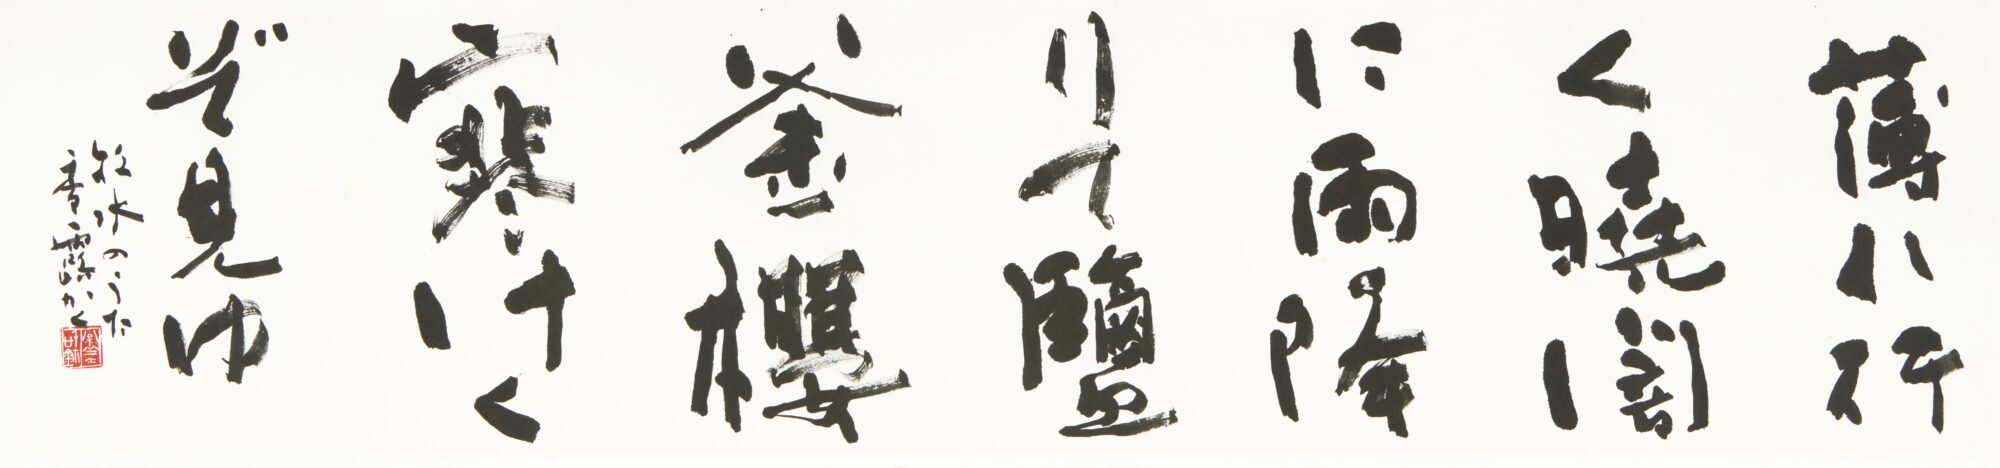 薄ハ行
く曉闇
に雨降
りて鹽
釜櫻
寒けく
ぞ見ゆ
牧水のうた
香露かく